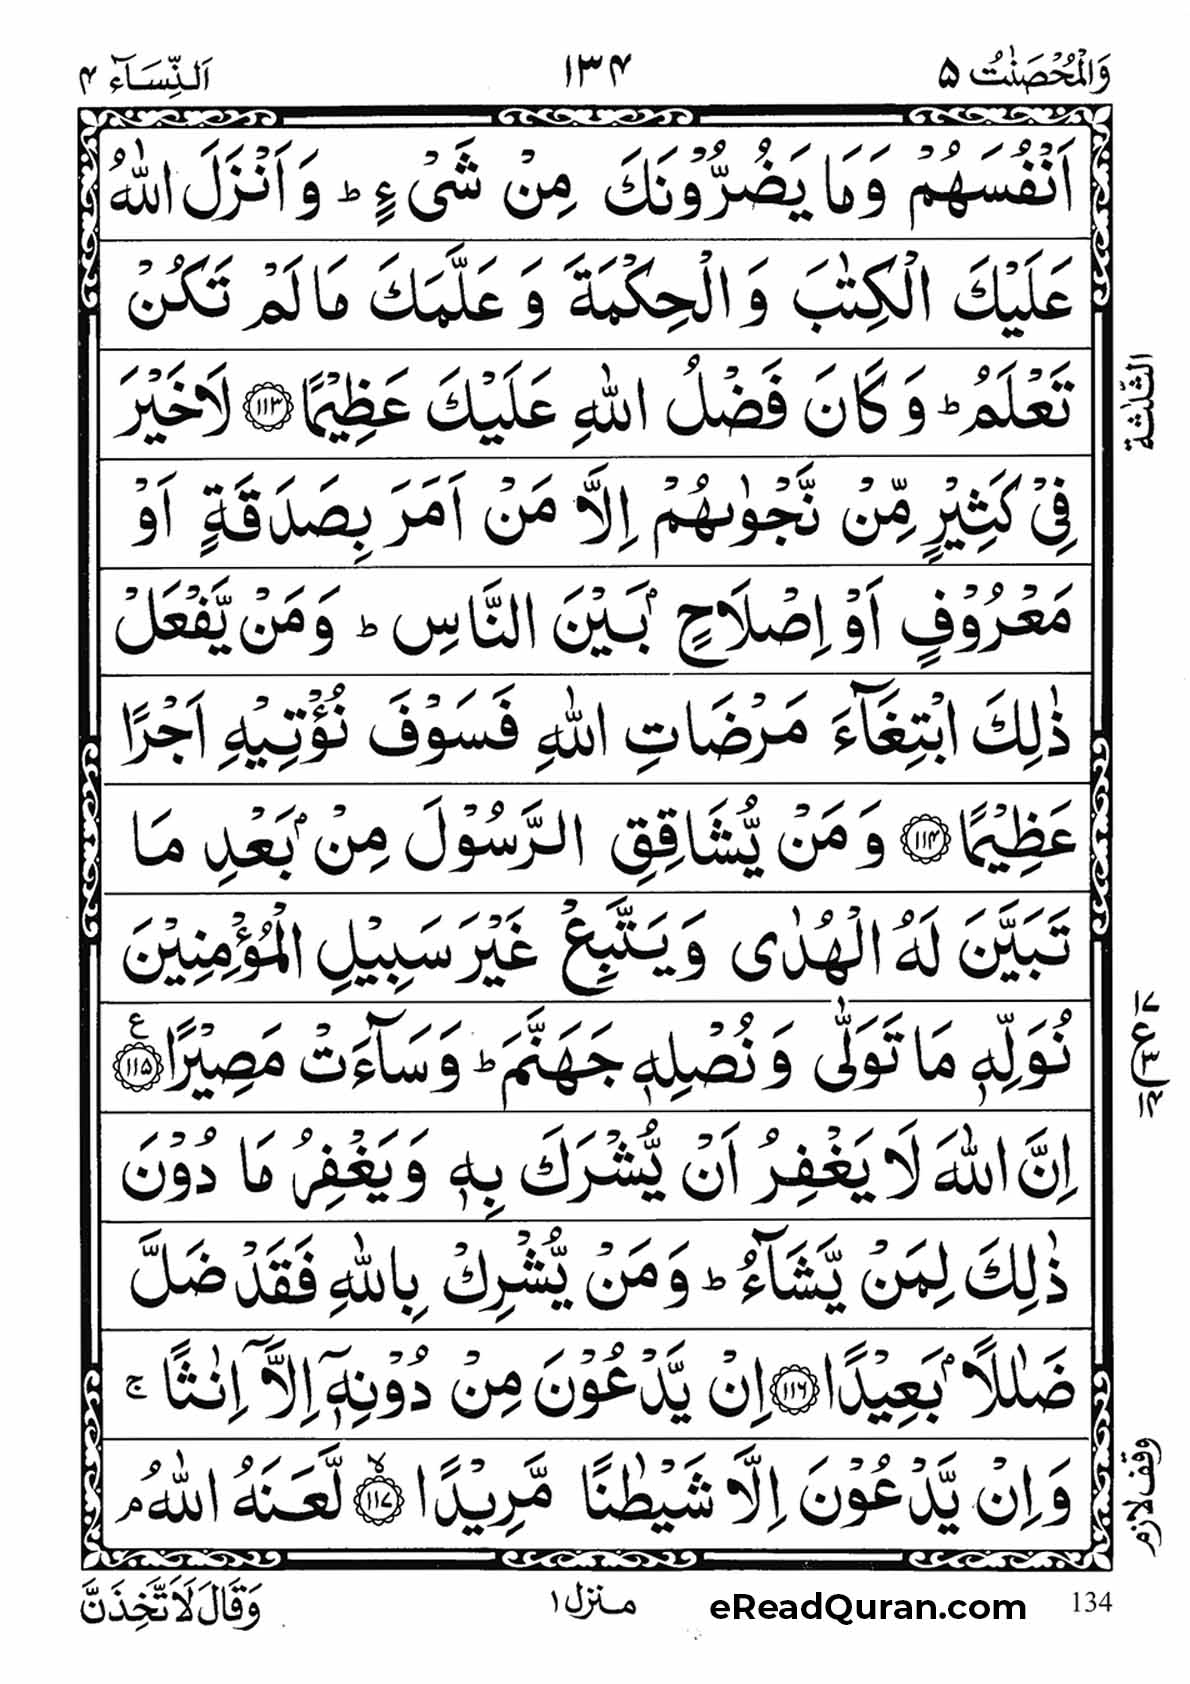 وَالْمُحْصَنٰتُ ۵ ۱۳۴ اَلنِّسَآء ۴
اَنْفُسَهُمْ وَمَا يَضُرُّوْنَكَ مِنْ شَىْءٍ ؕ وَاَنْزَلَ اللّٰهُ
عَلَيْكَ الْكِتٰبَ وَالْحِكْمَةَ وَعَلَّمَكَ مَا لَمْ تَكُنْ
تَعْلَمُ ؕ وَكَانَ فَضْلُ اللّٰهِ عَلَيْكَ عَظِيْمًا ۱۱۳ لَا خَيْرَ
الثّلٰثة
فِىْ كَثِيْرٍ مِّنْ نَّجْوٰىهُمْ اِلَّا مَنْ اَمَرَ بِصَدَقَةٍ اَوْ
مَعْرُوْفٍ اَوْ اِصْلَاحٍۢ بَيْنَ النَّاسِ ؕ وَمَنْ يَّفْعَلْ
ذٰلِكَ ابْتِغَآءَ مَرْضَاتِ اللّٰهِ فَسَوْفَ نُؤْتِيْهِ اَجْرًا
عَظِيْمًا ۱۱۴ وَمَنْ يُّشَاقِقِ الرَّسُوْلَ مِنْۢ بَعْدِ مَا
تَبَيَّنَ لَهُ الْهُدٰى وَيَتَّبِعْ غَيْرَ سَبِيْلِ الْمُؤْمِنِيْنَ
نُوَلِّهٖ مَا تَوَلّٰى وَنُصْلِهٖ جَهَنَّمَ ؕ وَسَآءَتْ مَصِيْرًا ۱۱۵ ع
۱۷ ع ۳ ۱۴
اِنَّ اللّٰهَ لَا يَغْفِرُ اَنْ يُّشْرَكَ بِهٖ وَيَغْفِرُ مَا دُوْنَ
ذٰلِكَ لِمَنْ يَّشَآءُ ؕ وَمَنْ يُّشْرِكْ بِاللّٰهِ فَقَدْ ضَلَّ
ضَلٰلًاۢ بَعِيْدًا ۱۱۶ اِنْ يَّدْعُوْنَ مِنْ دُوْنِهٖۤ اِلَّاۤ اِنٰثًا ۚ
وَاِنْ يَّدْعُوْنَ اِلَّا شَيْطٰنًا مَّرِيْدًا ۱۱۷ ۙ لَّعَنَهُ اللّٰهُ ۘ
وقف لازم
وَقَالَ لَاَتَّخِذَنَّ منزل ۱ eReadQuran.com 134